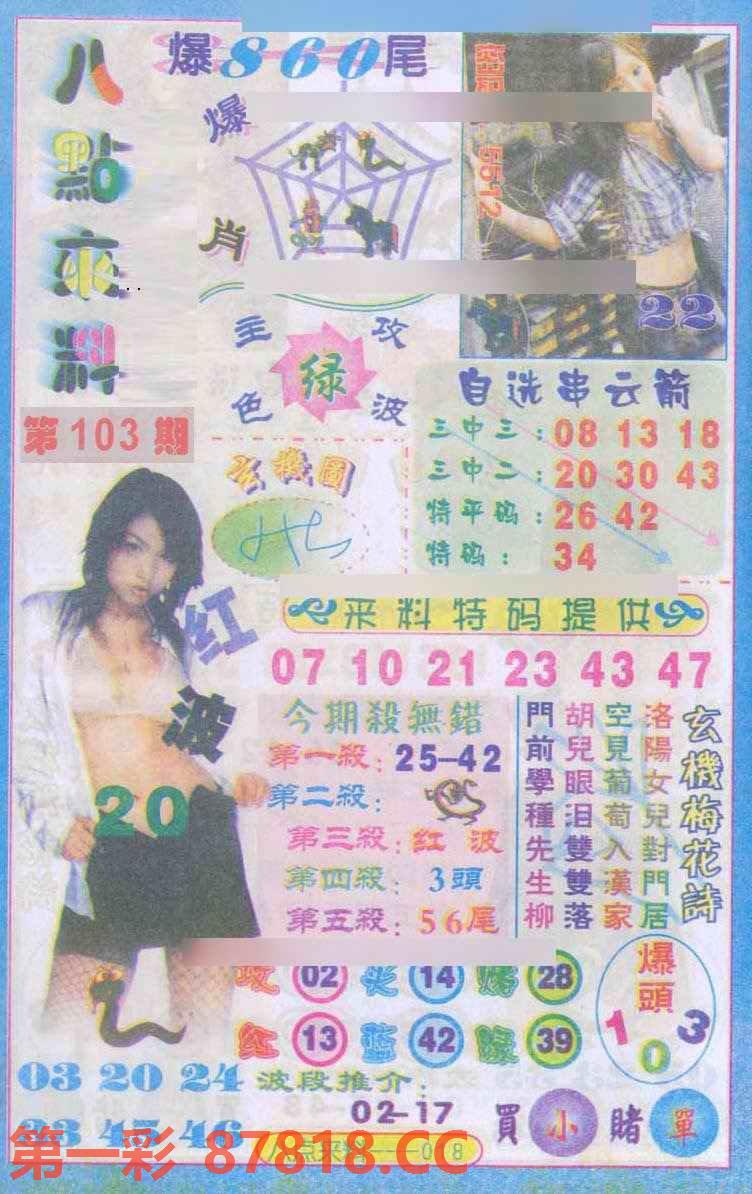 八點來料
爆860尾
爆
肖
5512
22
主攻
色波
绿
第103期
玄機圖
自选串云箭
三中三：08 13 18
三中二：20 30 43
特平码：26 42
特码：34
红波
20
来料特码提供
07 10 21 23 43 47
今期殺無錯
第一殺：25-42
第二殺：
第三殺：红波
第四殺：3頭
第五殺：56尾
玄機梅花詩
洛陽女兒對門居
空見葡萄入漢家
胡兒眼泪雙雙落
門前學種先生柳
02 14 28
红13 蓝42 绿39
爆頭
1 0 3
03 20 24
波段推介：
02-17
買小賭單
第一彩 87818.CC